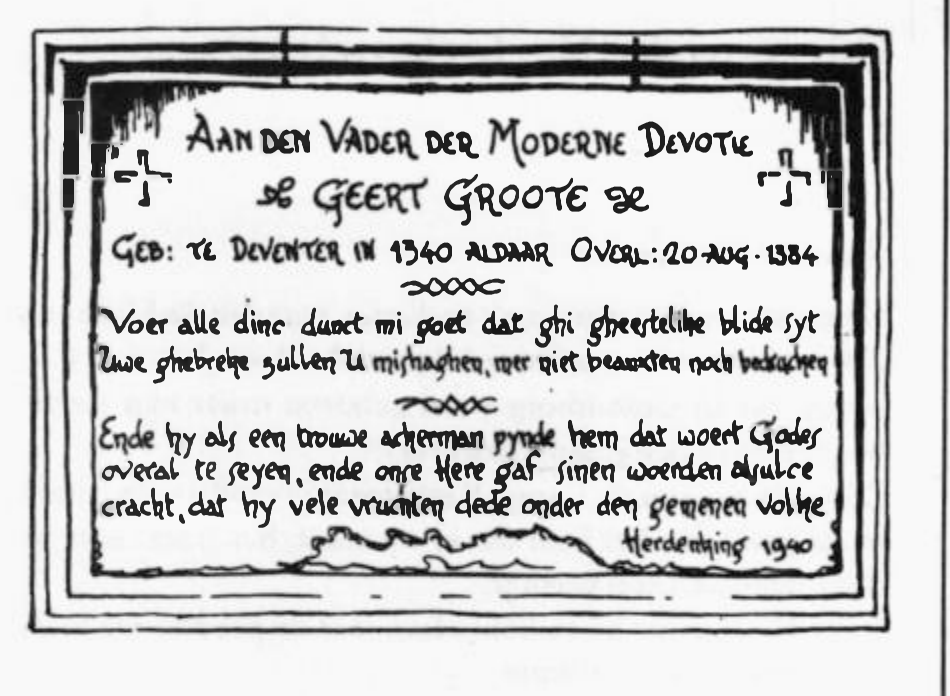 AAN DEN VADER DER MODERNE DEVOTIE
GEERT GROOTE
GEB: TE DEVENTER IN 1340 ALDAAR OVERL: 20 AUG. 1384
Voer alle dinc dunct mi goet dat ghi gheestelike blide syt
Uwe ghebreke zullen U mishaghen, mer niet beanxten noch bedrucken
Ende hy als een trouwe ackerman pynde hem dat woert Godes
overal te seyen, ende onse Here gaf sinen woerden alsulce
cracht, dat hy vele vruchten dede onder den gemenen volke
Herdenking 1940